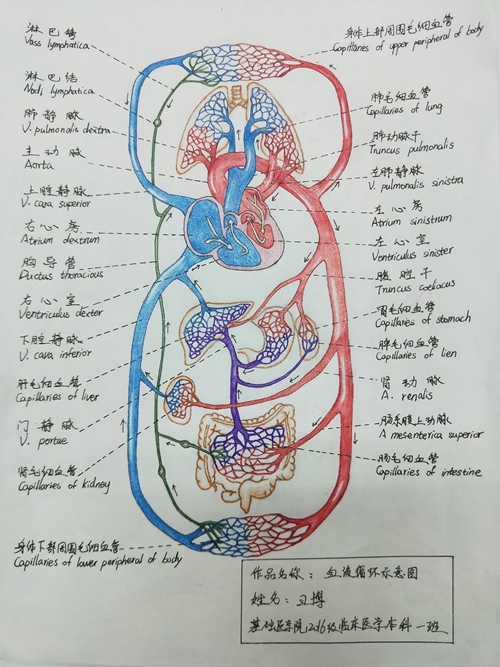 淋巴管
Vass lymphatica
淋巴结
Nodi lymphatica
肺静脉
V. pulmonalis dextra
主动脉
Aorta
上腔静脉
V. cava superior
右心房
Atrium dextrum
胸导管
Ductus thoracious
右心室
Ventriculus dexter
下腔静脉
V. cava inferior
肝毛细血管
Capillaries of liver
门静脉
V. portae
肾毛细血管
Capillaries of kidney
身体下部周围毛细血管
Capillaries of lower peripheral of body
身体上部周围毛细血管
Capillaries of upper peripheral of body
肺毛细血管
Capillaries of lung
肺动脉干
Truncus pulmonalis
左肺静脉
V. pulmonalis sinistra
左心房
Atrium sinistrum
左心室
Ventriculus sinister
腹腔干
Truncus coeliacus
胃毛细血管
Capillaries of stomach
脾毛细血管
Capillaries of lien
肾动脉
A. renalis
肠系膜上动脉
A mesenterica superior
肠毛细血管
Capillaries of intestine
作品名称：血液循环示意图
姓名：卫博
基础医学院2016级临床医学本科一班